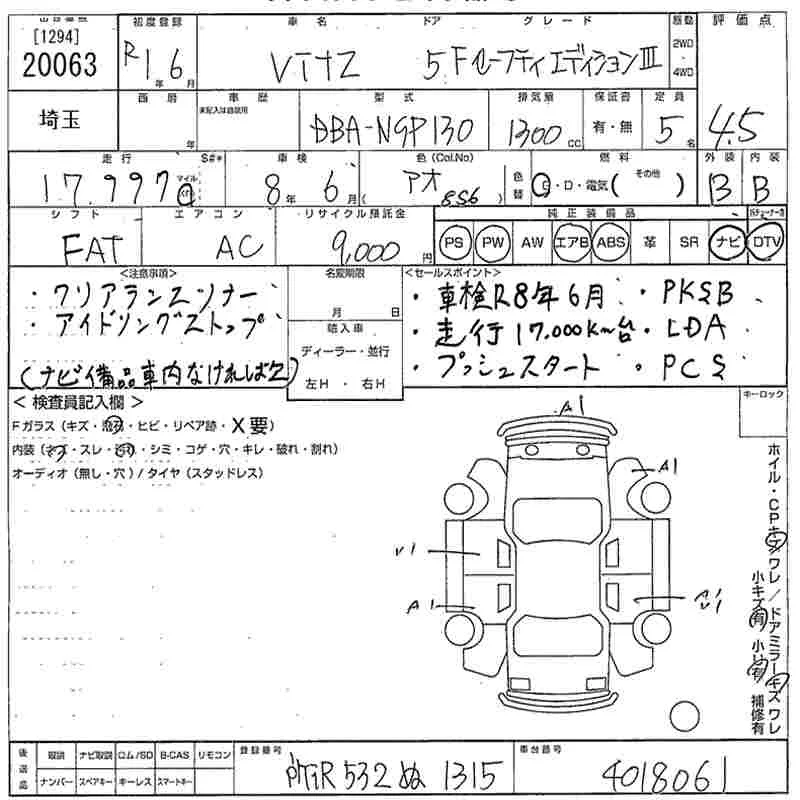 [1294]
20063
初度登録
R1年6月
車名
VITZ
ドア
グレード
5 Fセーフティエディション III
駆動
2WD
4WD
評価点
4.5
埼玉
西暦
年
車歴
未記入は自家用
型式
DBA-NSP130
排気量
1300cc
保証書
有・無
定員
5名
走行
S#*
17.997
マイル
Km
車検
8年6月
色(Col.No)
アオ
(8S6)
色替
燃料
G・D・電気( その他 )
外装
B
内装
B
シフト
FAT
エアコン
AC
リサイクル預託金
9,000円
純正装備品
PS PW AW エアB ABS 革 SR ナビ DTV
<注意事項>
・クリアランスソナー
・アイドリングストップ
(ナビ備品車内なければ欠)
名変期限
月 日
輸入車
ディーラー・並行
左H・右H
<セールスポイント>
・車検R8年6月 ・PKSB
・走行17,000Km台 ・LDA
・プッシュスタート ・PCS
<検査員記入欄>
キーロック
Fガラス(キズ・飛石・ヒビ・リペア跡・X要)
内装(キズ・スレ・汚れ・シミ・コゲ・穴・キレ・破れ・割れ)
オーディオ(無し・穴)/タイヤ(スタッドレス)
A1
A1
U1
A1
A1
U1
ホイル・CPキズワレ/ドアミラーキズワレ
小キズ有 小凹有 補修有
後送品
取説 ナビ取説 ロム/SD B-CAS リモコン
ナンバー スペアキー キーレス スマートキー
登録番号
532 ぬ 1315
車台番号
4018061